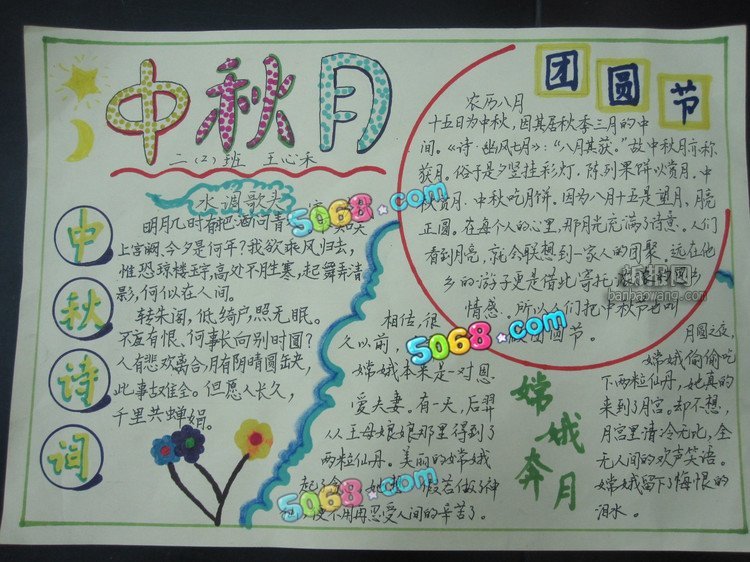 中秋月
二(2)班 王心禾
水调歌头
明月几时有把酒问青
上宫阙、今夕是何年?我欲乘风归去,
惟恐琼楼玉宇,高处不胜寒,起舞弄清
影,何似在人间。
转朱阁,低绮户,照无眠。
不应有恨、何事长向别时圆?
人有悲欢离合,月有阴晴圆缺,
此事古难全。但愿人长久,
千里共蝉娟。
中秋诗词
团圆节
农历八月
十五日为中秋,因其居秋季三月的中
间。《诗·幽风七月》:"八月其获。"故中秋月亦称
获月。俗于是夕竖挂彩灯,陈列果饼以赏月。中
秋赏月、中秋吃月饼。因为八月十五是望月,月亮
正圆。在每个人的心里,那月光充满了诗意。人们
看到月亮,就会联想到一家人的团聚。远在他
乡的游子更是借此寄托
情感。所以人们把中秋节也叫
团圆节。
嫦娥奔月
相传,很
久以前,
嫦娥本来是一对恩
爱夫妻。有一天,后羿
从王母娘娘那里得到了
两粒仙丹。美丽的嫦娥
假若做了神
便不用再忍受人间的辛苦了。
月圆之夜,
嫦娥偷偷吃
下两粒仙丹,她真的
来到了月宫。却不想,
月宫里清冷无比,全
无人间的欢声笑语。
嫦娥留下了悔恨的
泪水。
5068.com
5068.com
5068.com
banbaowang.com